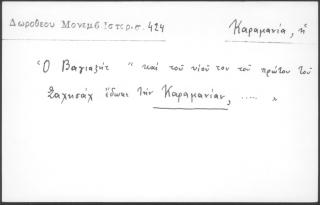 Δωροθεου Μονεμβ Ιστορ. σ. 424
Καραμανία, ἡ
Ὁ Βαγιαζὴτ " καὶ τοῦ υἱοῦ του τοῦ πρώτου τοῦ
Σαχησὰχ ἔδωσε τὴν Καραμανίαν, ..... "